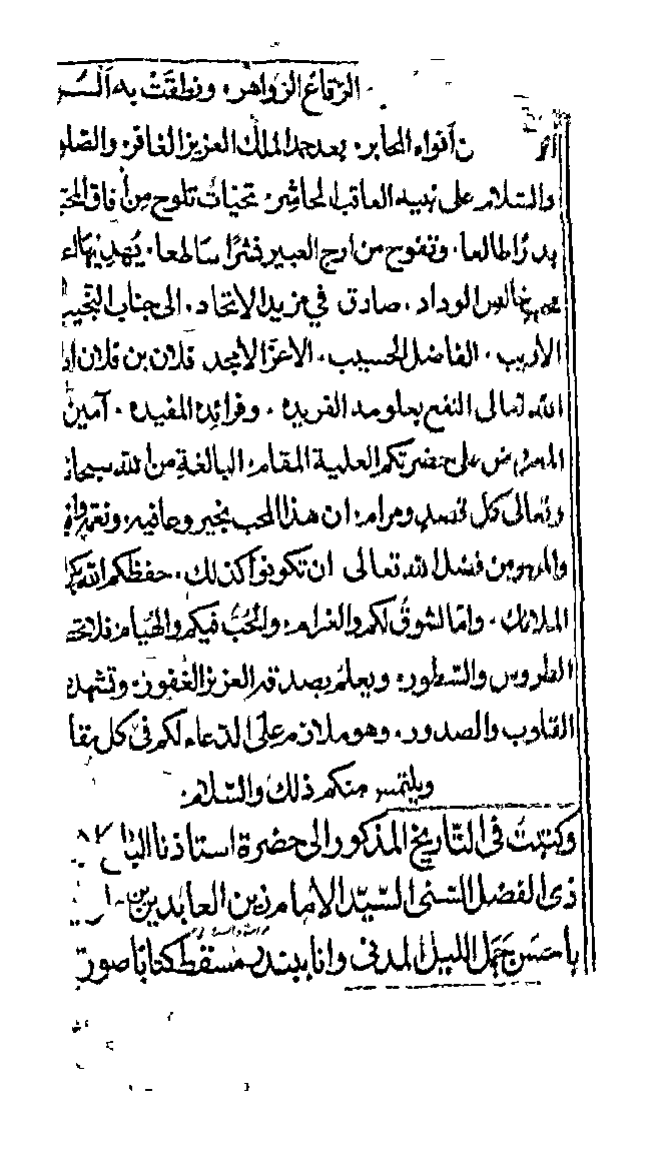 الرقاع الزواهر، ونطقت به
من أفواه المحابر. بعد حمد الملك العزيز الغافر، والصلو
والسلام على نبيه العاقب الحاشر. تحيات تلوح من أفاق
بدرًا طالعا، وتفوح من ارج العبير نشرًا ساطعا، يهديها
خالص الوداد، صادق في مزيد الاتحاد، الى جناب
الأديب، الفاضل الحسيب، الاعز الامجد فلان بن فلان
الله تعالى النفع بعلومه الفريده، وفرائده المفيده، آمين
المعروض على حضرتكم العلية المقام، البالغة من الله سبحانه
وتعالى كل قصد ومرام، ان هذا المحب بخير وعافيه، ونعم
والمرجو من فضل الله تعالى ان تكونوا كذلك، حفظكم الله
الملائك، واما الشوق لكم والغرام، والحب فيكم والهيام فلا
الطروس والسطور، ويعلم بصدقه العزيز الغفور، وتشهد
القلوب والصدور، وهو ملازم على الدعاء لكم في كل
ويلتمس منكم ذلك والسلام.
وكتبت في التاريخ المذكور الى حضرة استاذنا
ذى الفضل السنى السيد الامام زين العابدين بن
باحسن جمل الليل المدنى وانا ببندر مسقط كتابا صور